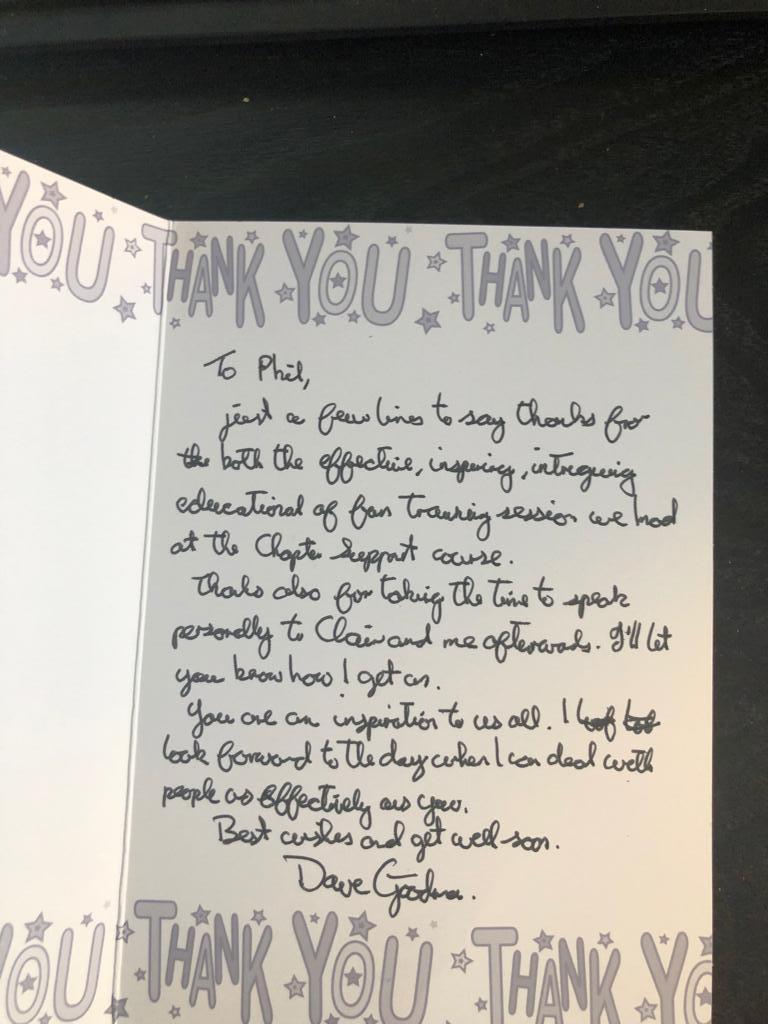 YOU THANK YOU THANK YOU
To Phil,
just a few lines to say thanks for
the both the effective, inspiring, intriguing
educational of fun training session we had
at the Chapter Support course.
Thanks also for taking the time to speak
personally to Clair and me afterwards. I'll let
you know how I get on.
You are an inspiration to us all. I
look forward to the day when I can deal with
people as effectively as you.
Best wishes and get well soon.
Dave
YOU THANK YOU THANK YO